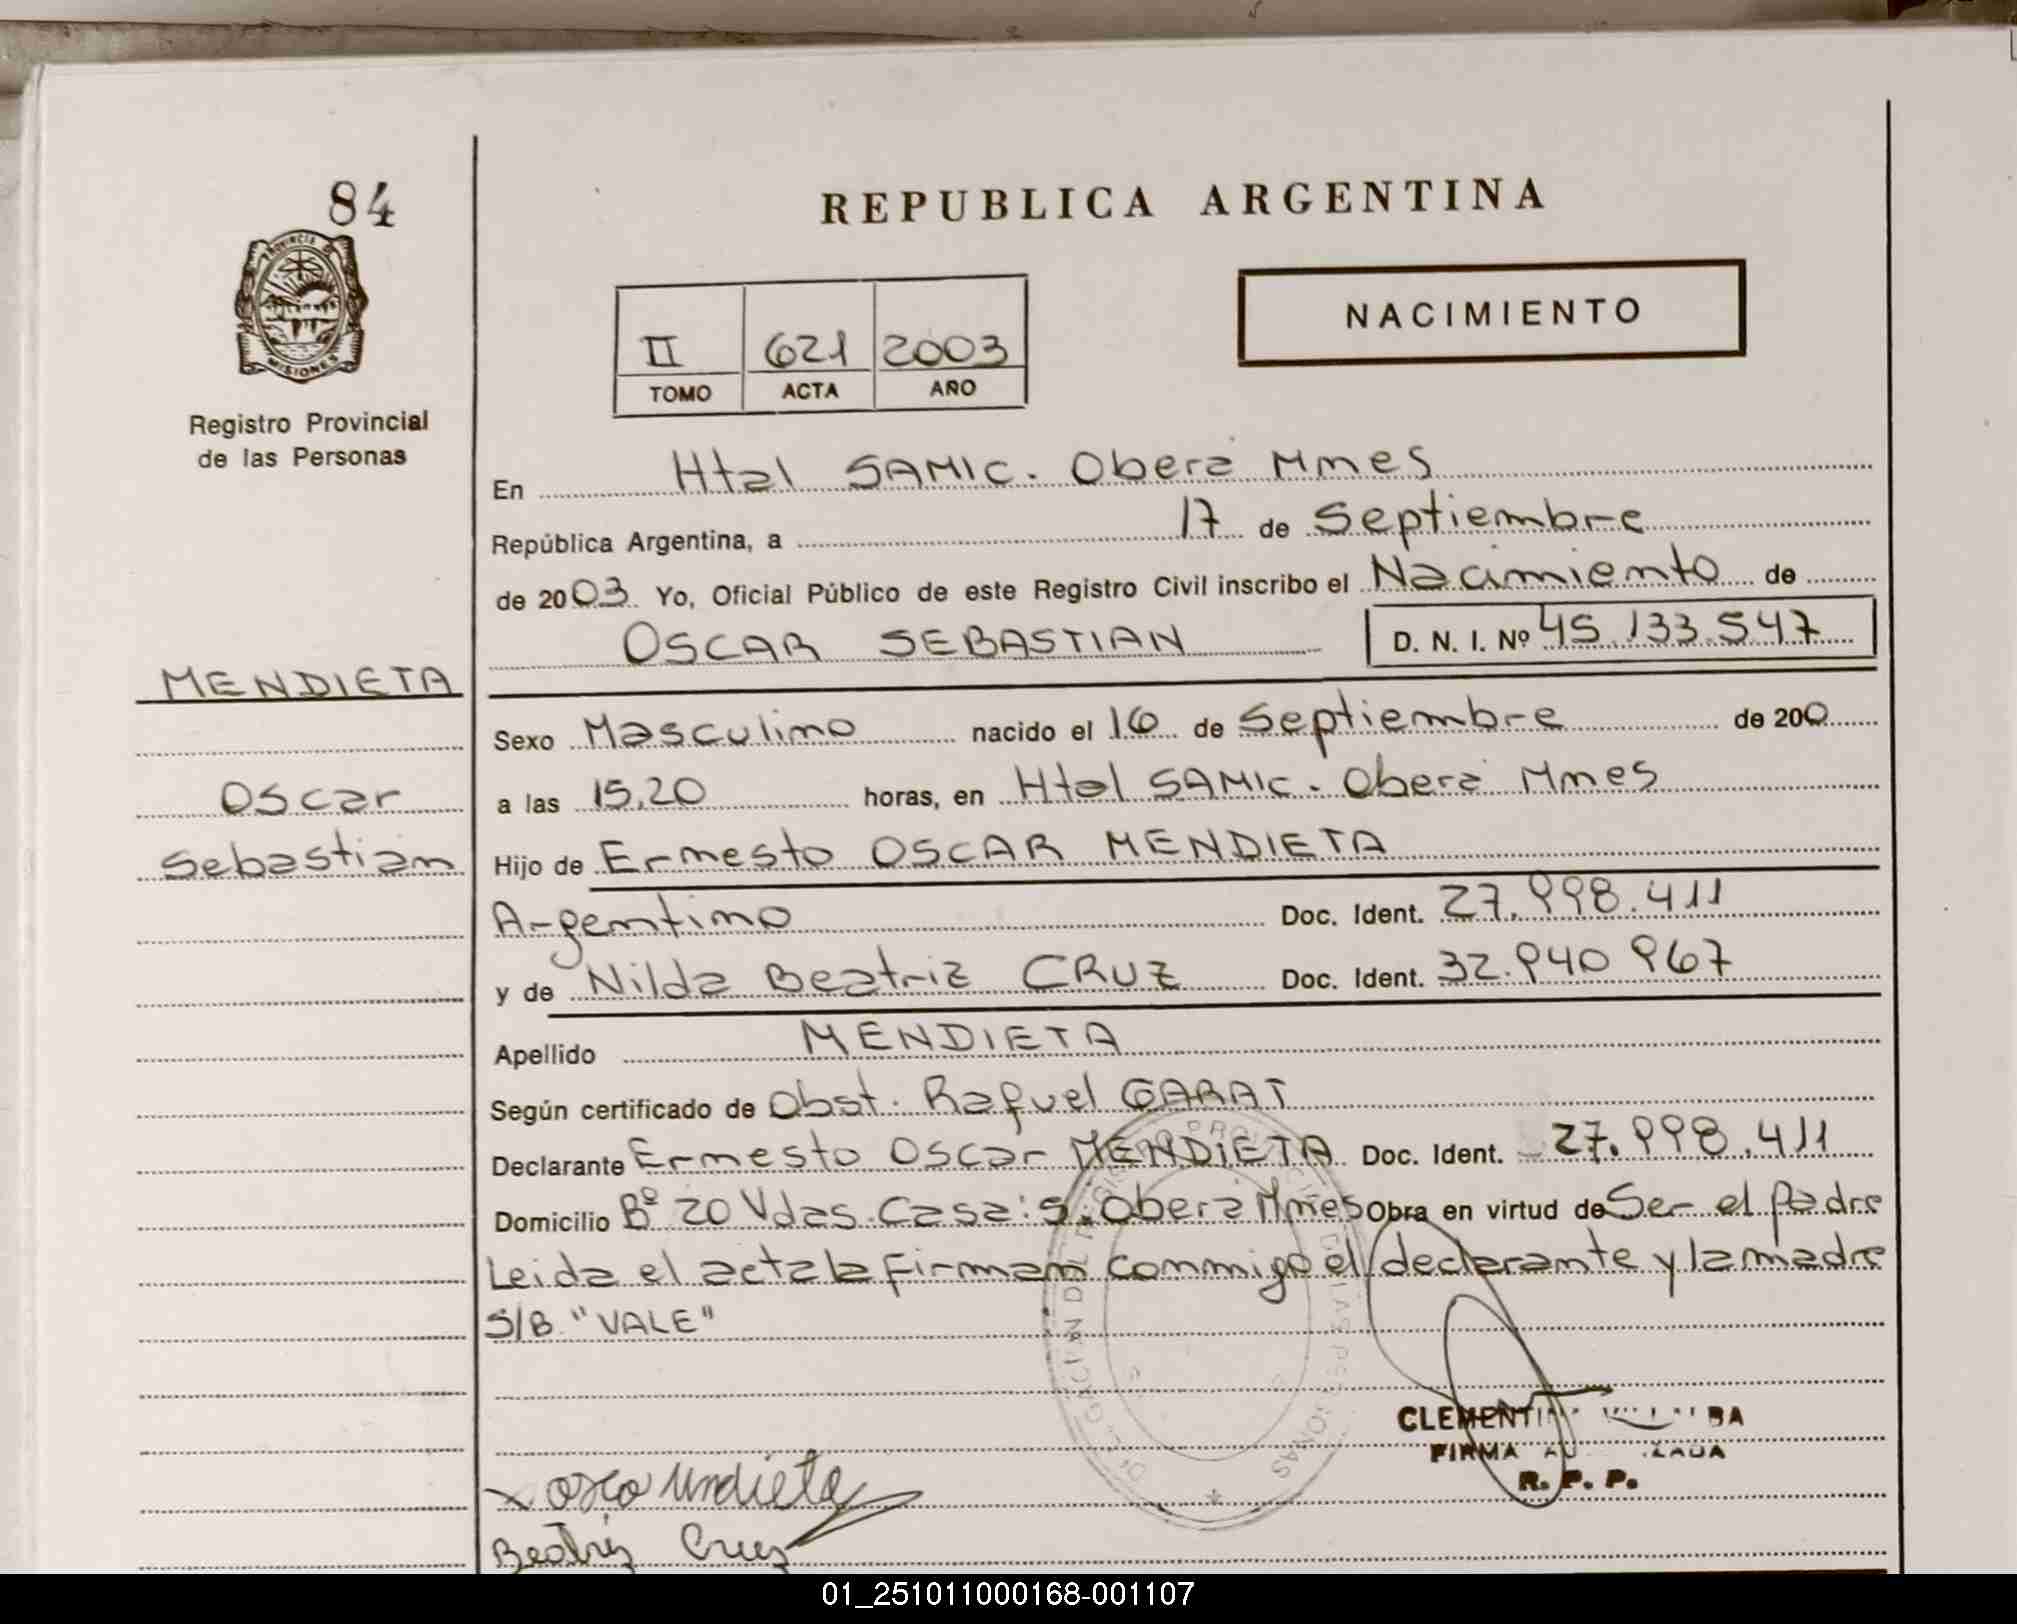 84
REPUBLICA ARGENTINA
PROVINCIA DE MISIONES
NACIMIENTO
II 621 2003
TOMO ACTA AÑO
Registro Provincial
de las Personas
En Htal SAMIC. Oberá Mnes
República Argentina, a 17 de Septiembre
de 2003 Yo, Oficial Público de este Registro Civil inscribo el Nacimiento de
OSCAR SEBASTIAN D. N. I. Nº 45.133.547
MENDIETA
Oscar
Sebastian
Sexo Masculino nacido el 16 de Septiembre de 200
a las 15,20 horas, en Htal SAMIC. Oberá Mnes
Hijo de Ernesto OSCAR MENDIETA
Argentino Doc. Ident. 27.998.411
y de Nilda Beatriz CRUZ Doc. Ident. 32.940 967
Apellido MENDIETA
Según certificado de Obst. Raquel GARAT
Declarante Ernesto Oscar MENDIETA Doc. Ident. 27.998.411
Domicilio Bº 20 Vdas. Casa: 5. Oberá Mnes Obra en virtud de Ser el padre
Leida el acta la firman conmigo el declarante y la madre
S/B "VALE"
FIRMA
R. P. P.
Beatriz Cruz
01_251011000168-001107